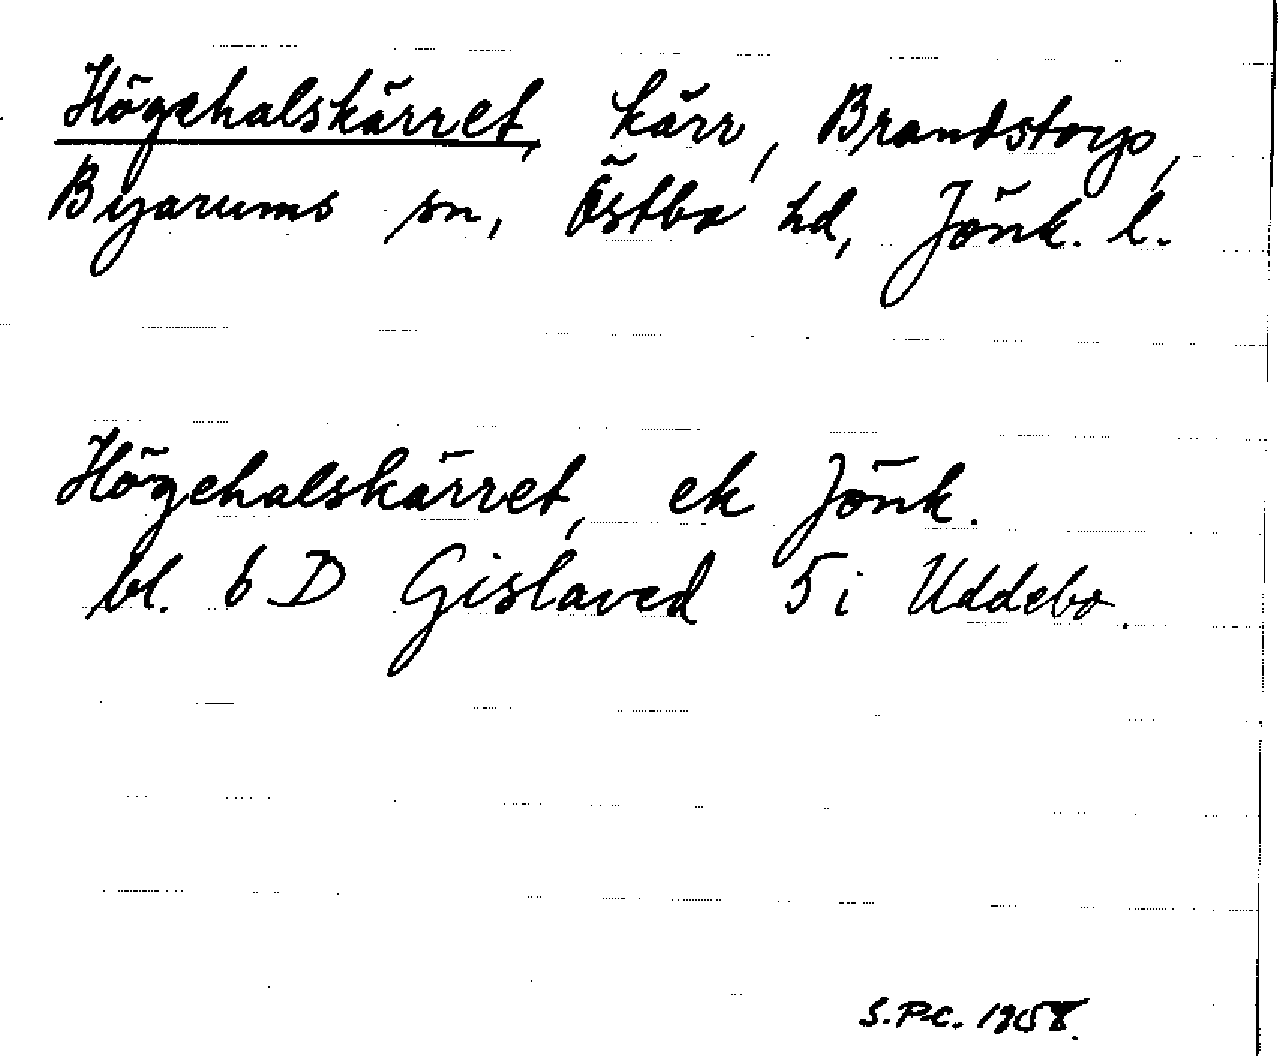 Högehalskärret, kärr, Brandstorp,
Byarums sn, Östbo hd, Jönk. l.
Högehalskärret, ek Jönk.
bl. 6 D Gislaved 5 i Uddebo.
S.P-C. 1958.